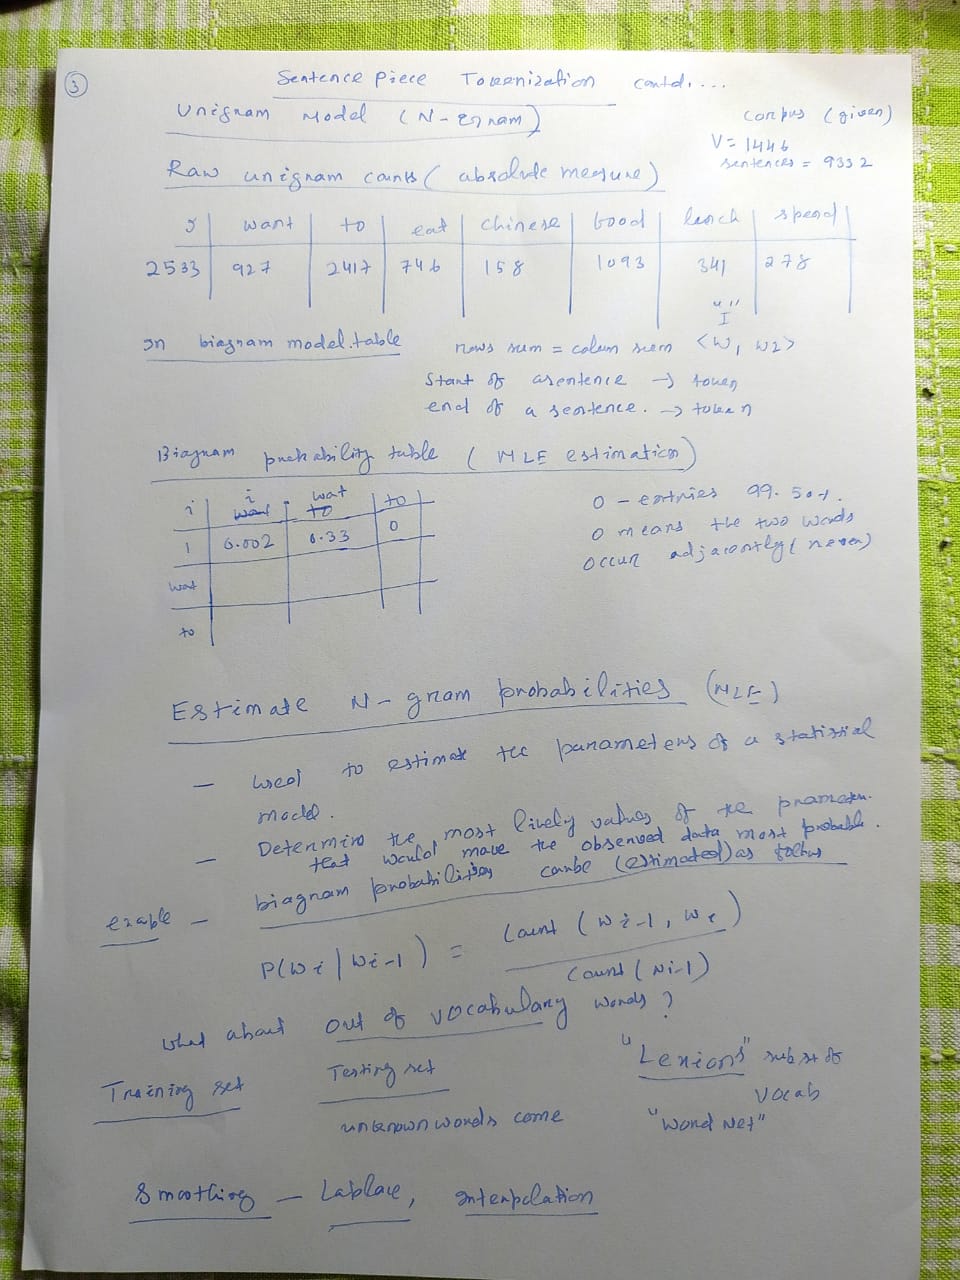 3
Sentence Piece Tokenization contd....
Unigram Model (N-Gram)
corpus (given)
V = 1446
sentences = 9332
Raw unigram counts (absolute measure)
i want to eat chinese food lunch spend
2533 927 2417 746 158 1093 341 278
"I"
In biagram model table rows sum = colum sum <W1 W2>
Start of a sentence → token
end of a sentence. → token
Biagram probability table (MLE estimation)
i i wat to
i 0.002 0.33 0
wat
to
0 - entries 99.50%.
0 means the two words
occur adjacently (never)
Estimate N-gram probabilities (MLE)
- Used to estimate the parameters of a
model.
- Determine the most likely values of the
that would make the observed data most probable.
- biagram probabilities canbe (estimated) as
P(wi | wi-1) = Count (wi-1, wi) / Count (wi-1)
what about out of vocabulary words?
Training set Testing set
unknown words come
"Lexicons" subset of
vocab
"Word Net"
Smoothing - Laplace, Interpolation